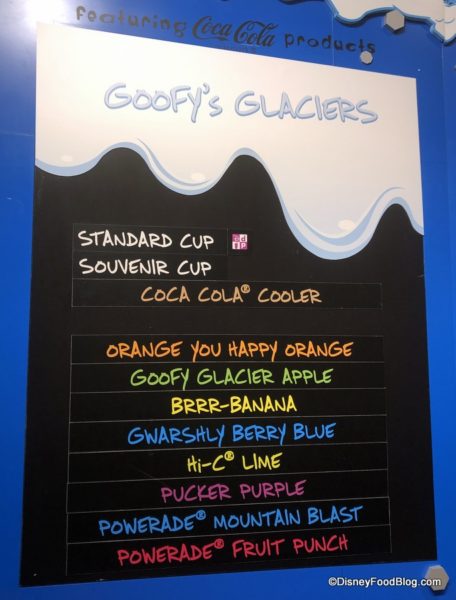 featuring Coca-Cola products
GOOFY'S GLACIERS
STANDARD CUP
SOUVENIR CUP
COCA COLA® COOLER
ORANGE YOU HAPPY ORANGE
GOOFY GLACIER APPLE
BRRR-BANANA
GWARSHLY BERRY BLUE
Hi-C® LIME
PUCKER PURPLE
POWERADE® MOUNTAIN BLAST
POWERADE® FRUIT PUNCH
©DisneyFoodBlog.com